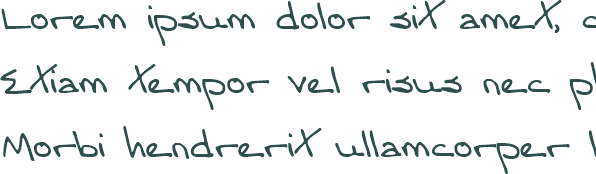 Lorem ipsum dolor sit amet, c
Etiam tempor vel risus nec pl
Morbi hendrerit ullamcorper l